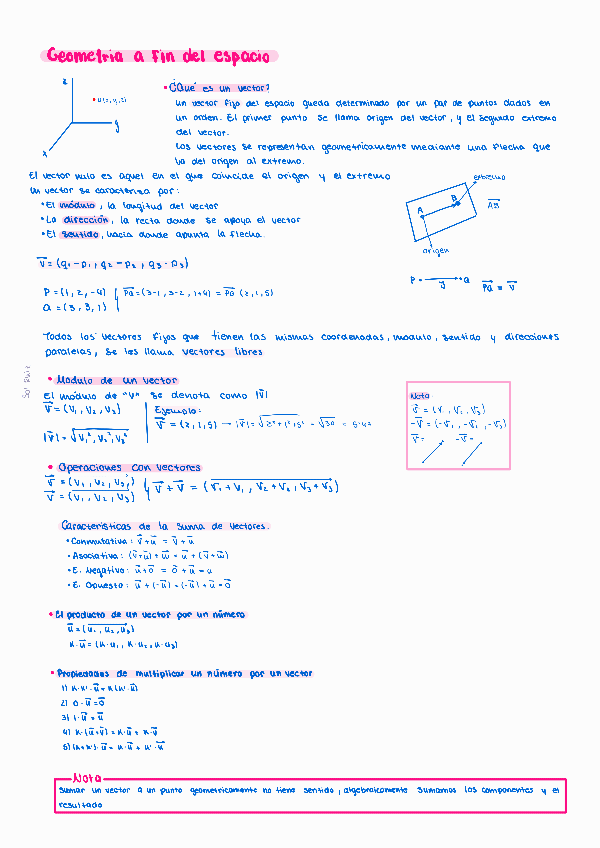 Geometria a fin del espacio
z
• u(x,y,z)
y
x
• ¿Qué es un vector?
Un vector fijo del espacio queda determinado por un par de puntos dados en
un orden. El primer punto se llama origen del vector, y el segundo extremo
del vector.
Los vectores se representan geometricamente mediante una flecha que
va del origen al extremo.
El vector nulo es aquel en el que coincide el origen y el extremo
Un vector se caracteriza por:
• El módulo, la longitud del vector
• La dirección, la recta donde se apoya el vector
• El sentido, hacia donde apunta la flecha.
extremo
A
B
AB
origen
V = (q₁-p₁, q₂-p₂, q₃-p₃)
P = (1, 2, -4) | PQ = (3-1, 3-2, 1+4) = PQ (2,1,5)
Q = (3, 3, 1)
P Q
PQ = V
Todos los vectores fijos que tienen las mismas coordenadas, modulo, sentido y direcciones
paralelas, se les llama vectores libres
Sol Ruiz
• Modulo de un vector
El módulo de "V" se denota como |V|
V = (V₁, V₂, V₃)
|V| = √V₁², V₂², V₃²
Ejemplo:
V = (2, 1, 5) → |V| = √2²+1²+5² = √30 = 5'47
Nota
V = (V₁, V₁, V₃)
-V = (-V₁, -V₁, -V₃)
V = -V =
• Operaciones con vectores
V = (V₁, V₂, V₃)
V = (V₁, V₂, V₃)
V + V = (V₁+V₁, V₂+V₂, V₃+V₃)
Características de la suma de vectores.
• Conmutativa: V+u = V+u
• Asociativa: (V+u)+w = u+(V+w)
• E. Negativo: u+0 = 0+u = u
• E. Opuesto: u+(-u) = (-u)+u = 0
• El producto de un vector por un número
u = (u₁, u₂, u₃)
K·u = (K·u₁, K·u₂, K·u₃)
• Propiedades de multiplicar un número por un vector
1) K·K'·u = K(K'·u)
2) 0·u = 0
3) 1·u = u
4) K·(u+v) = K·u + K·v
5) (K+K')·u = K·u + K'·u
Nota
Sumar un vector a un punto geometricamente no tiene sentido, algebraicamente sumamos las componentes y el
resultado